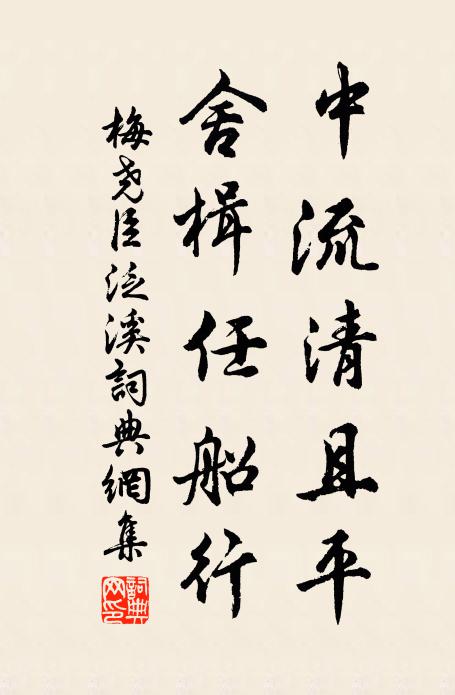 中流清且平
舍楫任船行
梅尧臣泛溪詞典網集
詞典网印